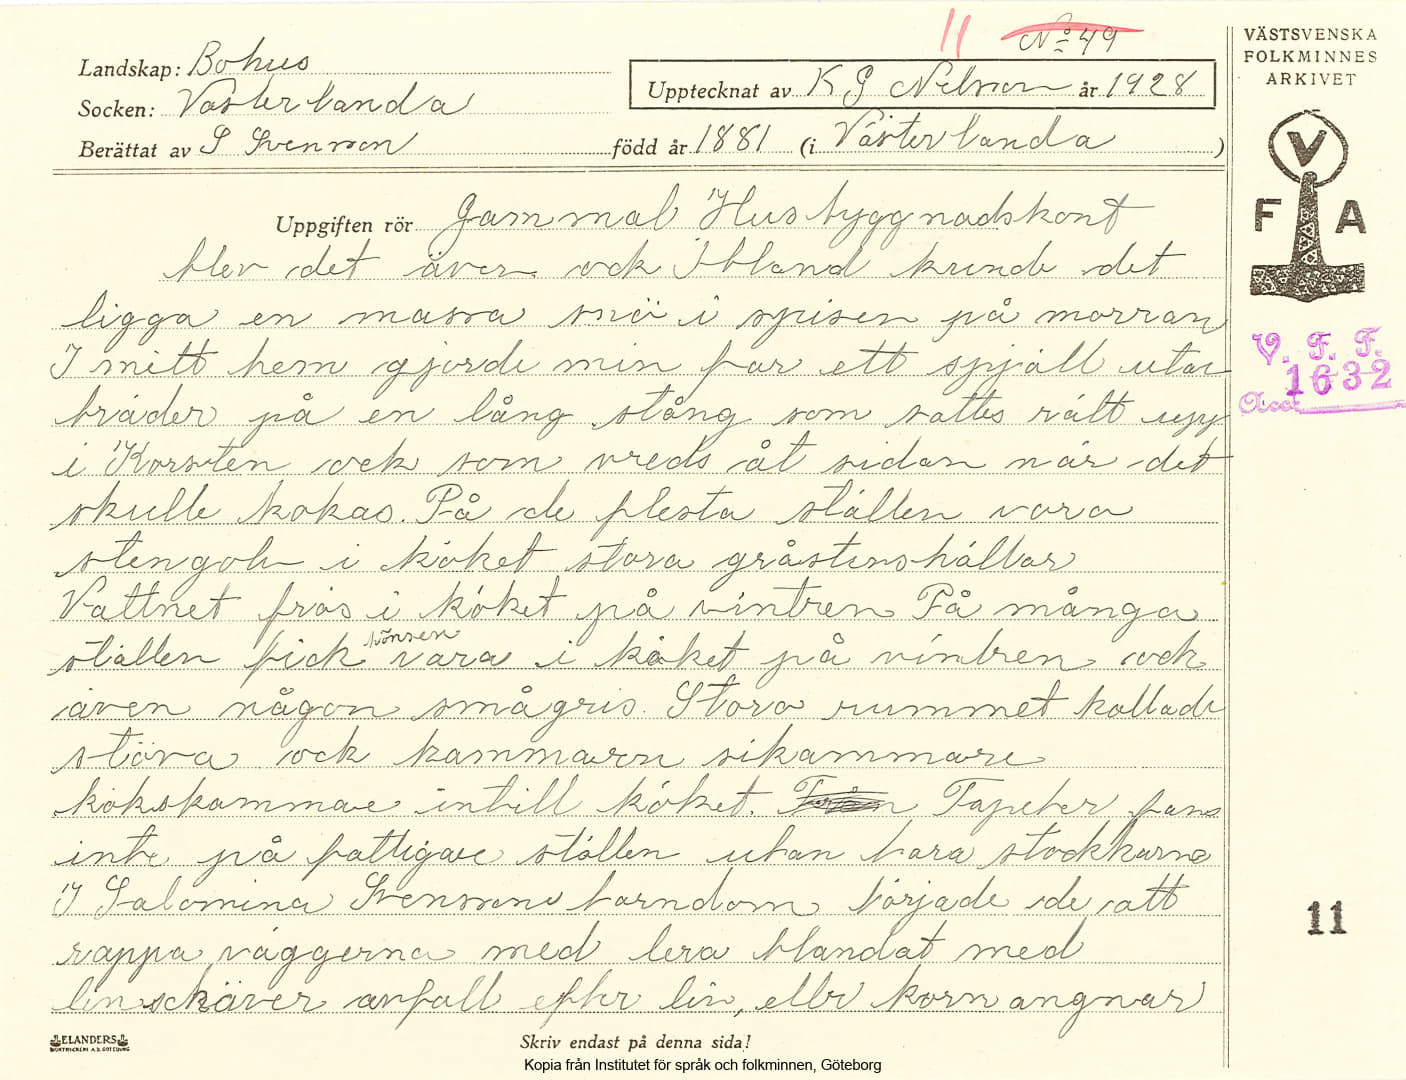 11 No 49
VÄSTSVENSKA
FOLKMINNES
ARKIVET
Landskap: Bohus
Upptecknat av K G Nelson år 1928
Socken: Västerlanda
Berättat av S Svensson född år 1881 (i Västerlanda )
V
F A
Uppgiften rör Gammal Husbyggnadskont
blev det även ock Ibland kunde det
ligga en massa snö i spisen på morran
I mitt hem gjorde min far ett spjäll utav
bräder på en lång stång som sattes rätt upp
i Korsten ock som vreds åt sidan när det
skulle kokas. På de flesta ställen vara
stengolv i köket stora gråstenshällar
Vattnet frös i köket på vintren På många
ställen fick hönsen vara i köket på vintren ock
även någon smågris. Stora rummet kallade
stöva ock kammarn sikammare
kökskammare intill köket. Tapeter fans
inte på fattigare ställen utan bara stockkarna
I Salomina Svenssons barndom började de att
rappa väggerna med lera blandat med
linschäver avfall efter lin, eller kornangnar
V. F. T.
1632
Acc.
11
ELANDERS
BOKTRYCKERI A.B. GÖTEBORG
Skriv endast på denna sida!
Kopia från Institutet för språk och folkminnen, Göteborg